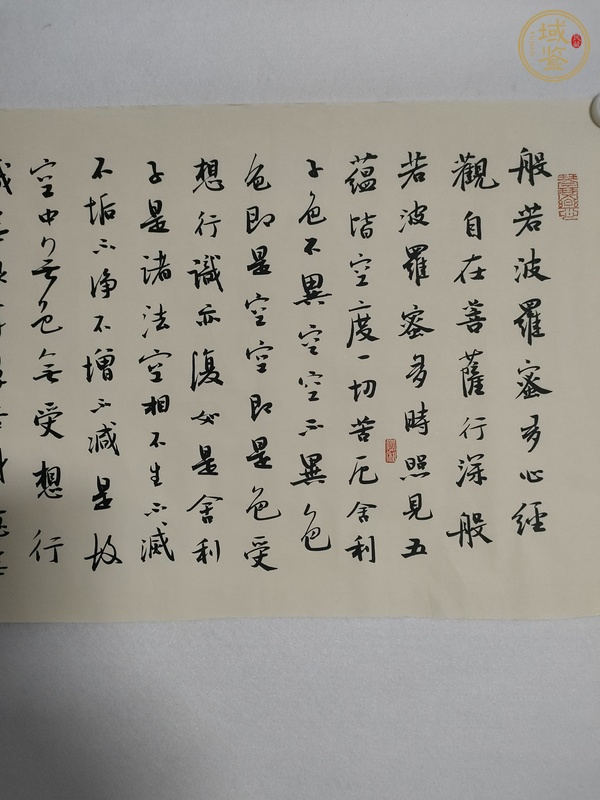 般若波羅蜜多心經
觀自在菩薩行深般
若波羅蜜多時照見五
蘊皆空度一切苦厄舍利
子色不異空空不異色
色即是空空即是色受
想行識亦復如是舍利
子是諸法空相不生不滅
不垢不净不增不减是故
空中无色無受想行
域鉴